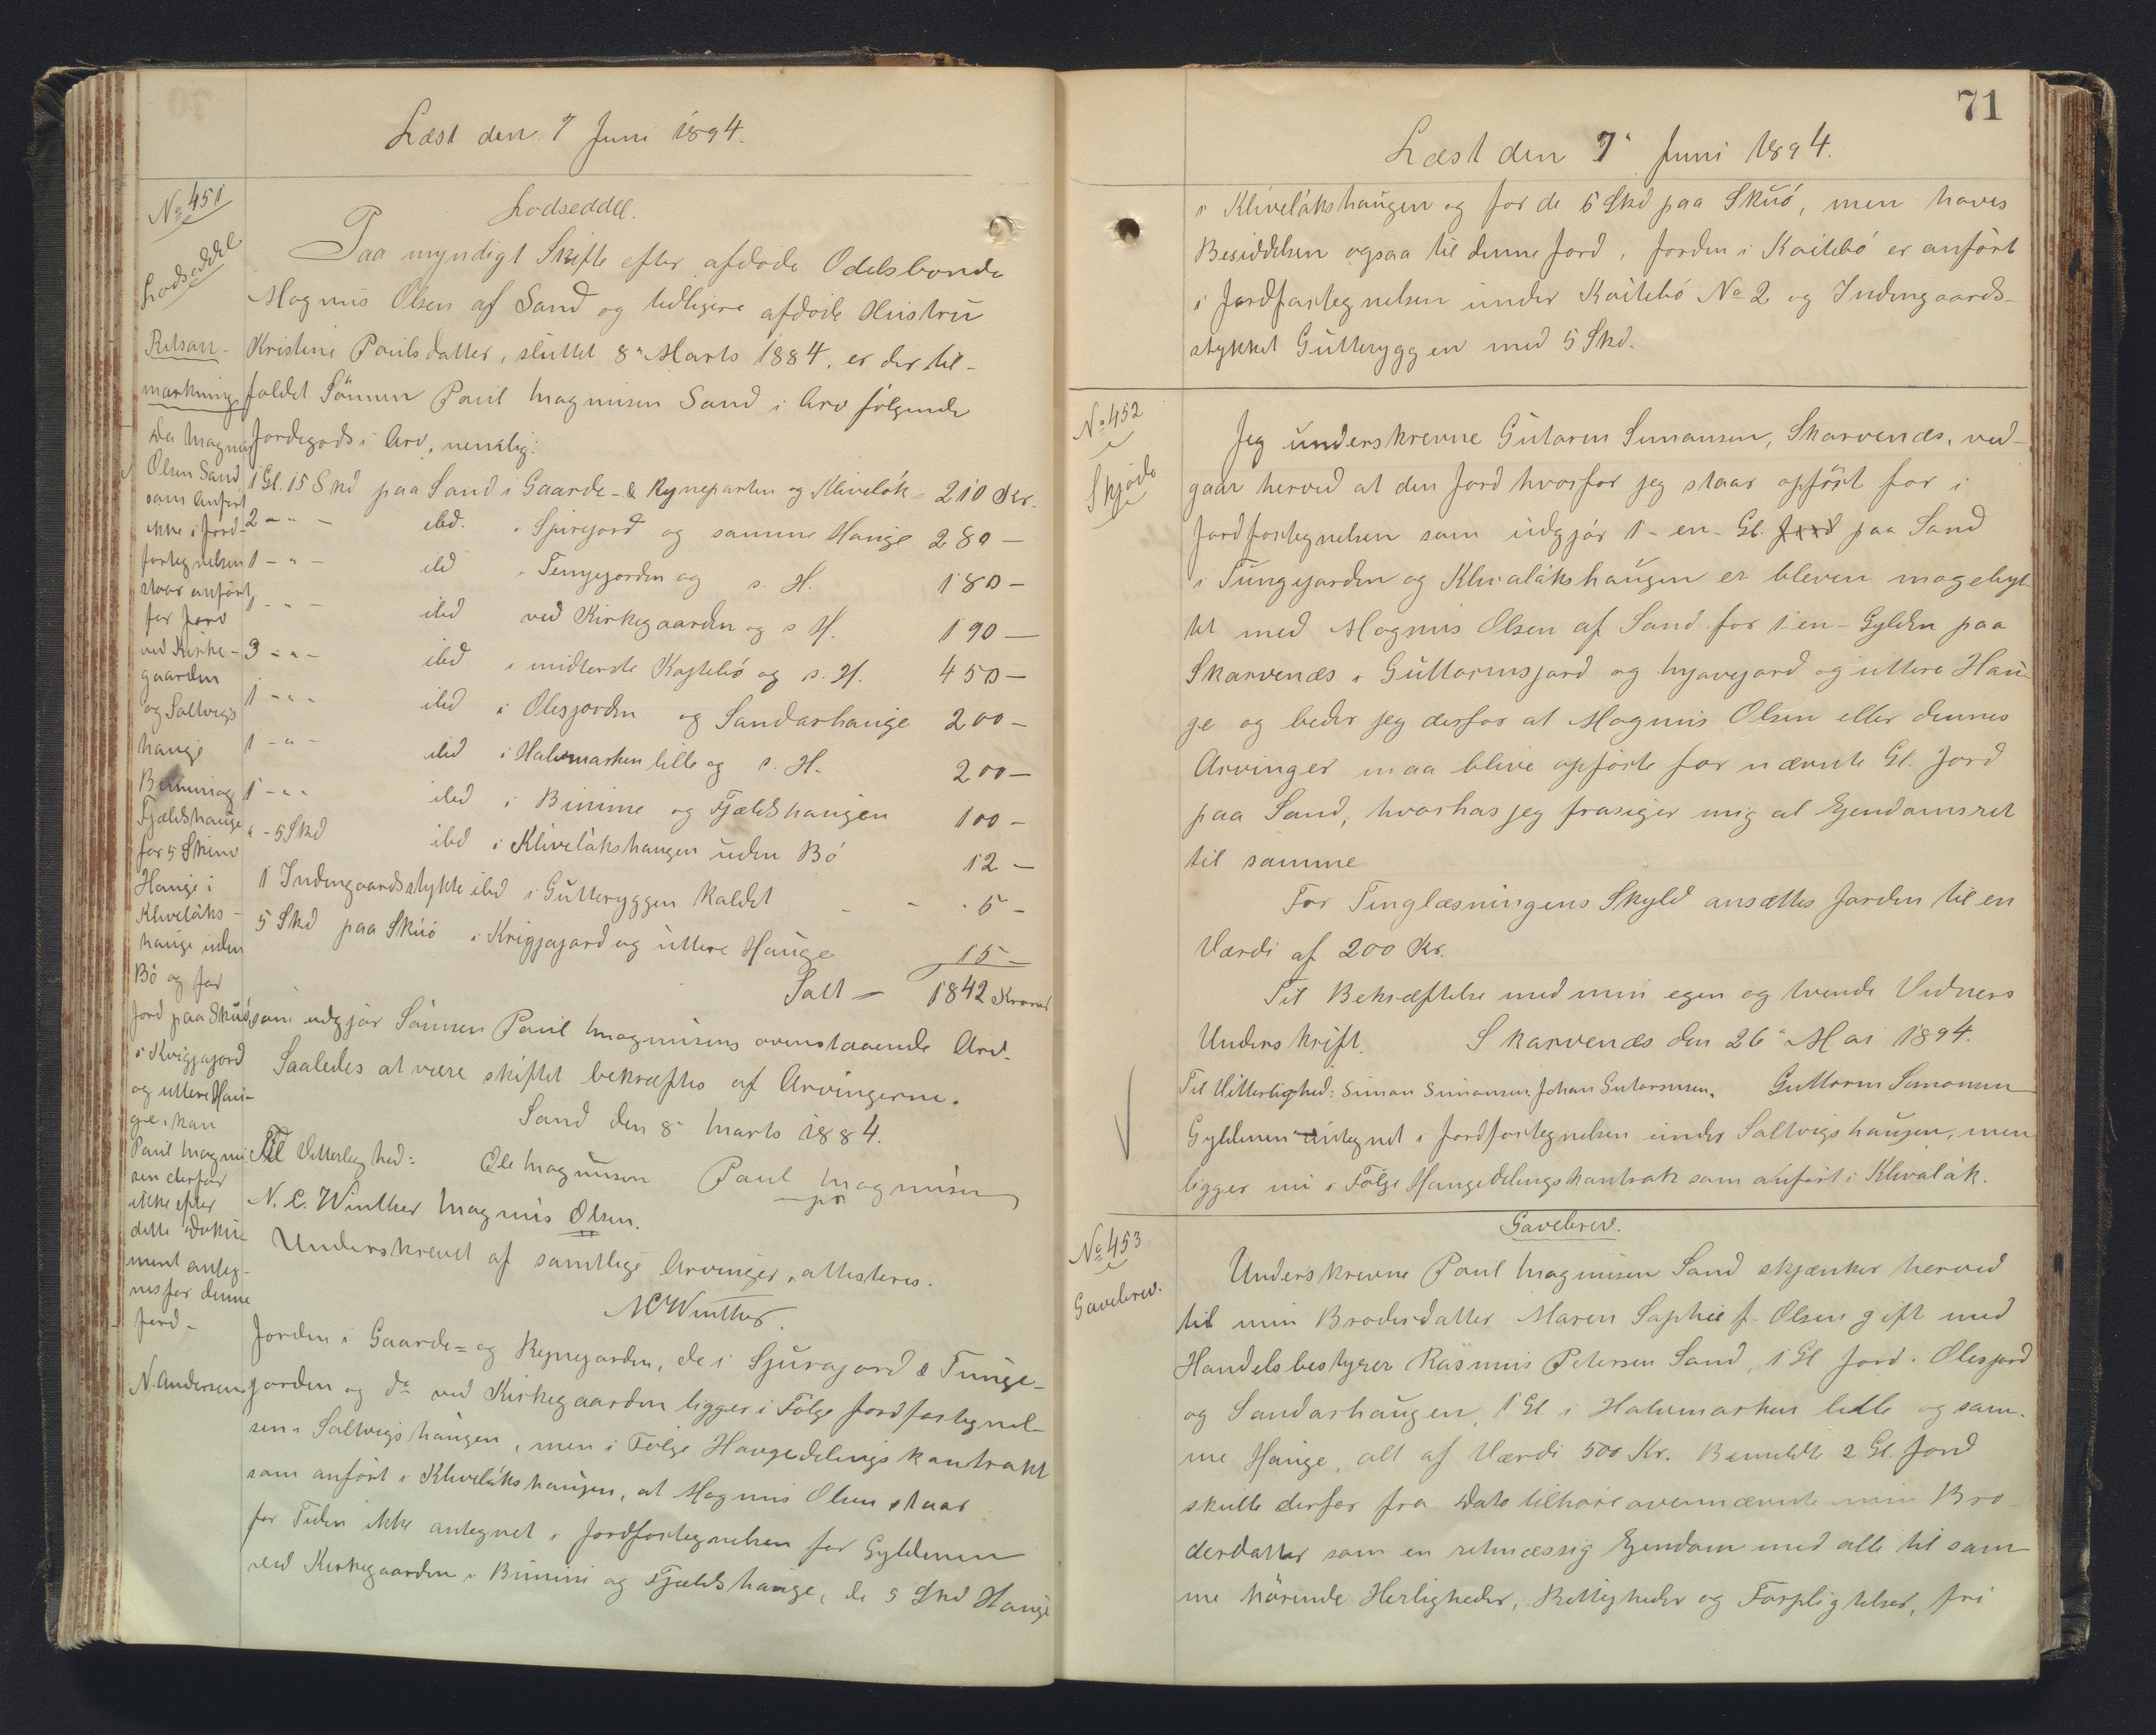 Læst den 7 Juni 1894.
No 451
Lodseddel
Lodseddel.
Paa myndigt Skifte efter afdøde Odelsbonde
Magnus Olsen af Sand og tidligere afdøde Hustru
Kristine Poulsdatter, sluttet 8" Marts 1884. er der til-
faldet Sönnen Poul Magnusen Sand i Arv følgende
Jordegods i Arv, nemlig:
1 Gl. 15 Skd paa Sand i Gaarde- & Ryneparten og Klivelók = 210 Kr.
2 - " - ibd. i Spurejord og samme Hauge 280 —
1 - " - ibd i Tungejorden og s. H. 180 —
1 - " - ibd ved Kirkegaarden og s H. 190 —
3 - " - ibid i midterste Kojtebó og s. H. 450 —
1 - " - ibd i Olesjorden og Sandarhauge 200 —
1 - " - ibd i Halvmarken lille og s. H. 200 —
1 - " - ibd i Binime og Fjældshaugen 100 —
" - 5 Skd ibd i Klivelákshaugen uden Bó 12 —
1 Indengaardsstykke ibd i Gutteryggen kaldet - - - 5 —
5 Skd paa Skúó i Krigjajord og uttere Hauge 15 —
Salt — 1842 Kroner
som udgjør Sönnen Poul Magnusens ovenstaaende Arv.
Saaledes at være skiftet bekræftes af Arvingerne.
Sand den 8 Marts 1884.
Til Vitterlighed: Ole Magnusen Paul Magnusen
N. C. Winther Magnus Olsen.
Underskrevet af samtlige Arvinger, attesteres.
NCWinther.
Jorden i Gaarde= og Rynejorden, de i Spurajord & Tunge-
jorden og do ved Kirkegaarden ligger i Følge Jordfortegnel-
sen i Saltvigshaugen, men i Følge Haugedelingskontrakt
som anført i Klivelákshaugen, at Magnus Olsen staar
for Tiden ikke antegnet i Jordfortegnelsen for Gyldenen
ved Kirkegaarden i Binime og Fjældshauge, de 5 Skd Hauge
Retsan-
mærkning
Da Magnus
Olsen Sand
som anført
ikke i Jord-
fortegnelsen
staar anført
for Jord
ved Kirke-
gaarden
og Saltvigs
hauge
Binime og
Fjældshauge
for 5 Skind
Hauge i
Kliveláks-
hauge uden
Bó og for
Jord paa Skúó
i Kvigjajord
og uttere Hau-
ge, kan
Poul Magnu
sen derfor
ikke efter
dette Doku-
ment anteg-
nes for denne
Jord -
N. Andersen
71
Læst den 7" Juni 1894.
i Klivelákshaugen og for de 5 Skd paa Skúó, men haves
Besiddelsen ogsaa til denne Jord, Jorden i Koitebó er anført
i Jordfortegnelsen under Koitebó No 2 og Indengaards-
stykket Gutteryggen med 5 Skd.
No 452
Skjøde
Jeg underskrevne Gutorm Simonsen, Skarvenæs, ved-
gaar herved at den Jord hvorfor jeg staar opført for i
Jordfortegnelsen som udgjør 1 - en - Gl. Jord paa Sand
i Tungejorden og Klivalákshaugen er bleven magebyt
tet med Magnus Olsen af Sand for 1 en - Gylden paa
Skarvenæs i Guttormsjord og hyarejord og uttere Hau-
ge og beder jeg derfor at Magnus Olsen eller dennes
Arvinger maa blive opførte for nævnte Gl. Jord
paa Sand, hvorhos jeg frasiger mig al Ejendomsret
til samme
For Tinglæsningens Skyld ansættes Jorden til en
Værdi af 200 Kr.
Til Bekræftelse med min egen og tvende Vidners
Underskrift. Skarvenæs den 26" Mai 1894.
Til Vitterlighed: Simon Simonsen. Johan Gutormsen. Guttorm Simonsen
Gyldenen antegnet i Jordfortegnelsen under Saltvigshaugen, men
ligger nu i Følge Haugedelingskontrak som anført i Klivalák.
No 453
Gavebrev.
Gavebrev.
Underskrevne Poul Magnusen Sand skjænker herved
til min Broderdatter Maren Sophie f. Olsen gift med
Handelsbestyrer Rasmus Petersen Sand, 1 Gl Jord i Olesjord
og Sandarhaugen, 1 Gl. i Halvmarken lille og sam-
me Hauge, alt af Værdi 500 Kr. Bemeldte 2 Gl. Jord
skulle derfor fra Dato tilhøre ovennævnte min Bro-
derdatter som en retmæssig Ejendom med alle til sam-
me hörende Herligheder, Rettigheder og Forpligtelser, fri